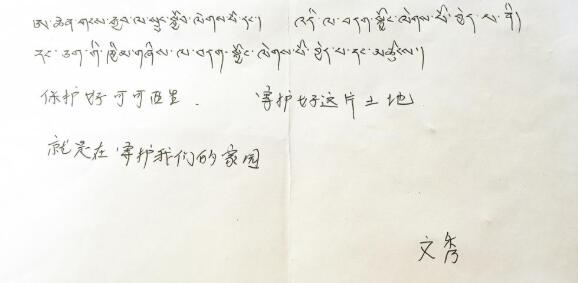 ཨ་ཆེན་གངས་རྒྱབ་ལ་སྲུང་སྐྱོབ་ལེགས་པོ་དང་། འདི་ལ་བདག་སྐྱོང་ལེགས་པོ་བྱེད་པ་ནི།
རང་ཅག་གི་ཁྱིམ་གཞིས་ལ་བདག་སྐྱོང་ལེགས་པོ་བྱེད་པ་དང་མཚུངས།
保护好可可西里. 守护好这片土地
就是在守护我们的家园
文秀